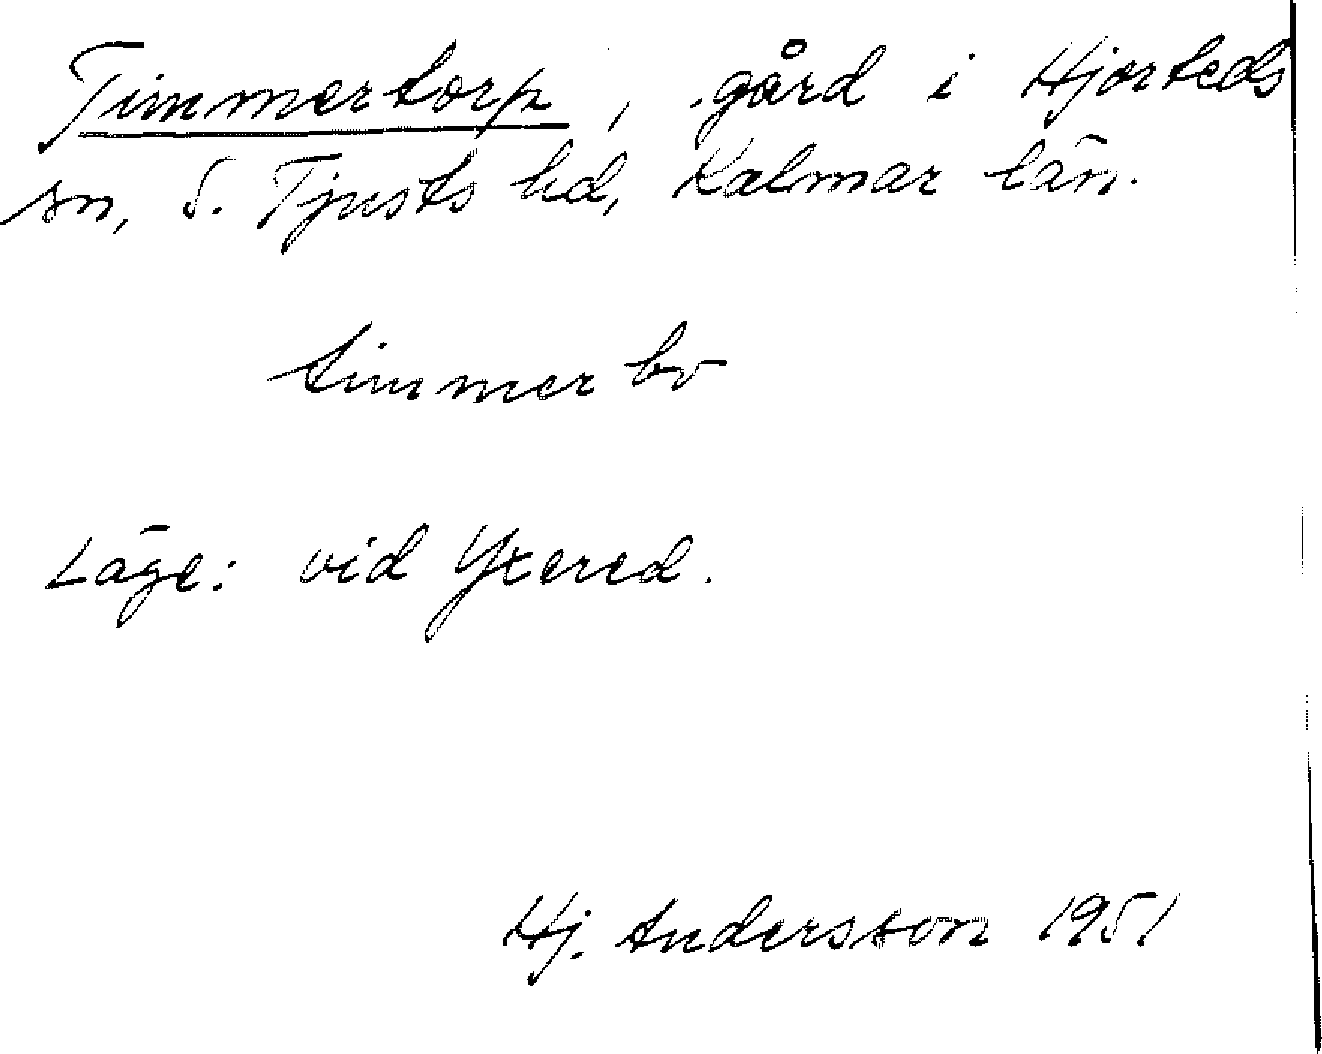 Timmertorp, gård i Hjorteds
sn, S. Tjusts hd, Kalmar län.
timmerbo
Läge: vid Yxered.
Hj. Andersson 1951